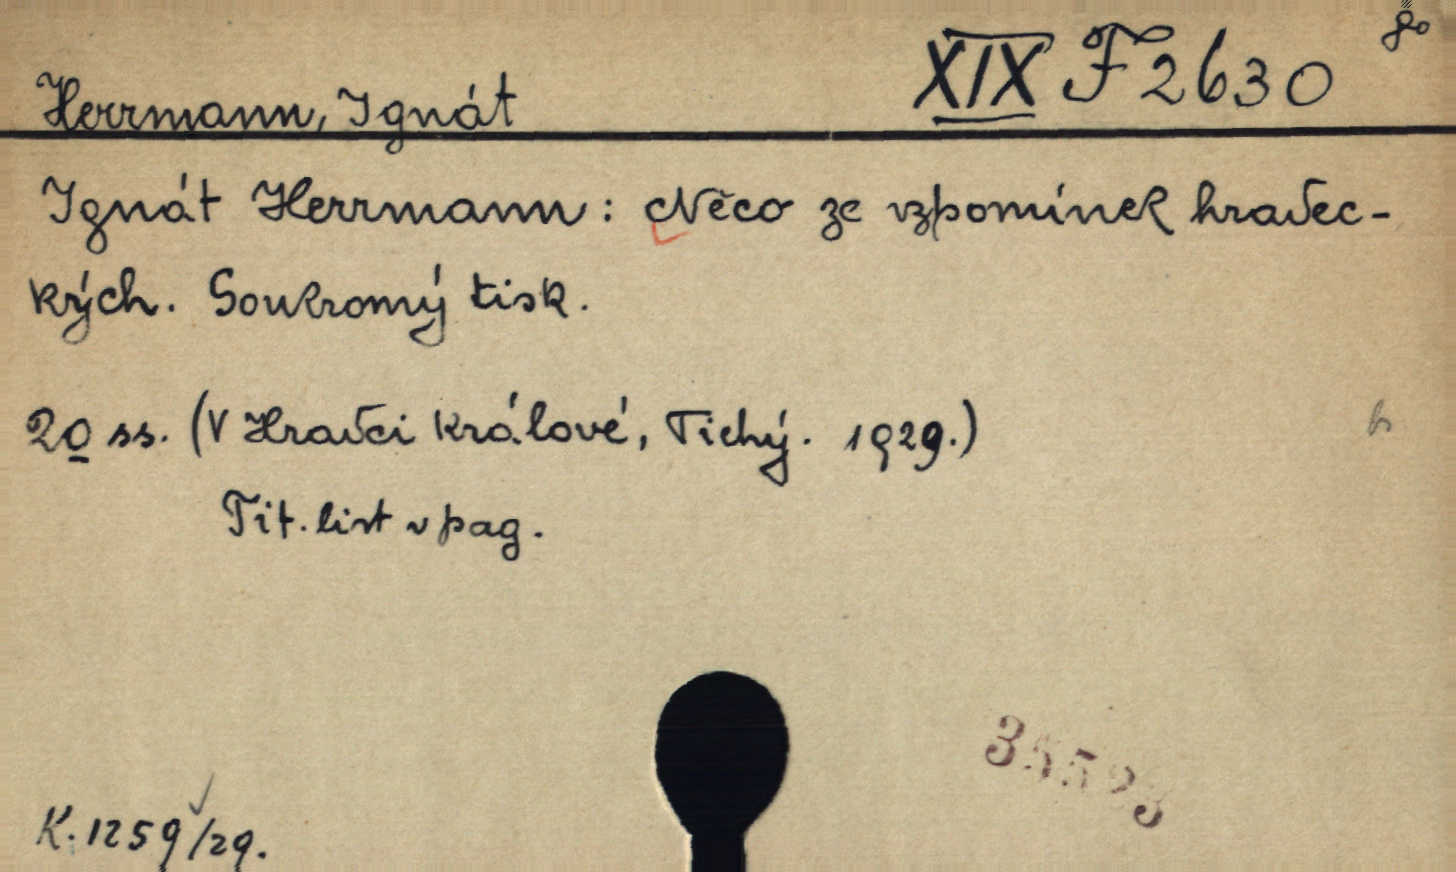 XIX F 2630 8o
Herrmann, Ignát
Ignát Herrmann: Něco ze vzpomínek hradec-
kých. Soukromý tisk.
20 ss. (V Hradci králové, Tichý. 1929.)
Tit. list v pag.
K. 1259/29.